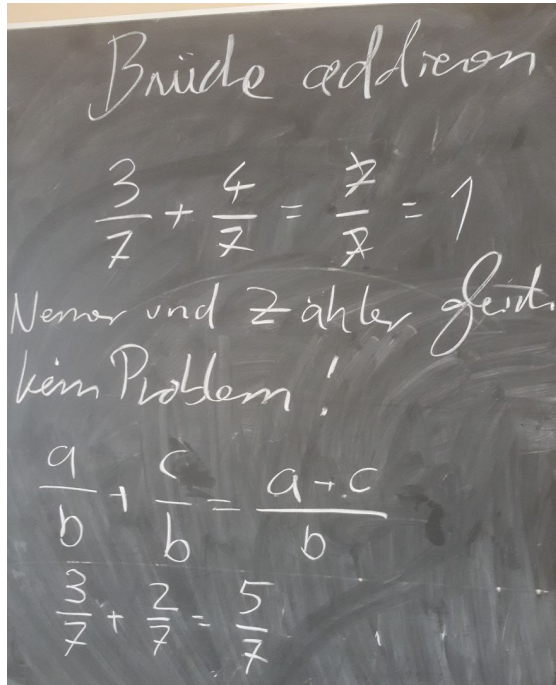 Brüche addieren
3/7 + 4/7 = 7/7 = 1
Nenner und Zähler gleich
kein Problem!
a/b + c/b = a+c/b
3/7 + 2/7 = 5/7